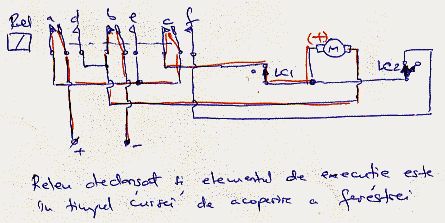 Rel a d b e c f
(+)
M
LC1 LC2
+ -
Releu declansat si elementul de executie este
in timpul cursei de acoperire a ferestrei